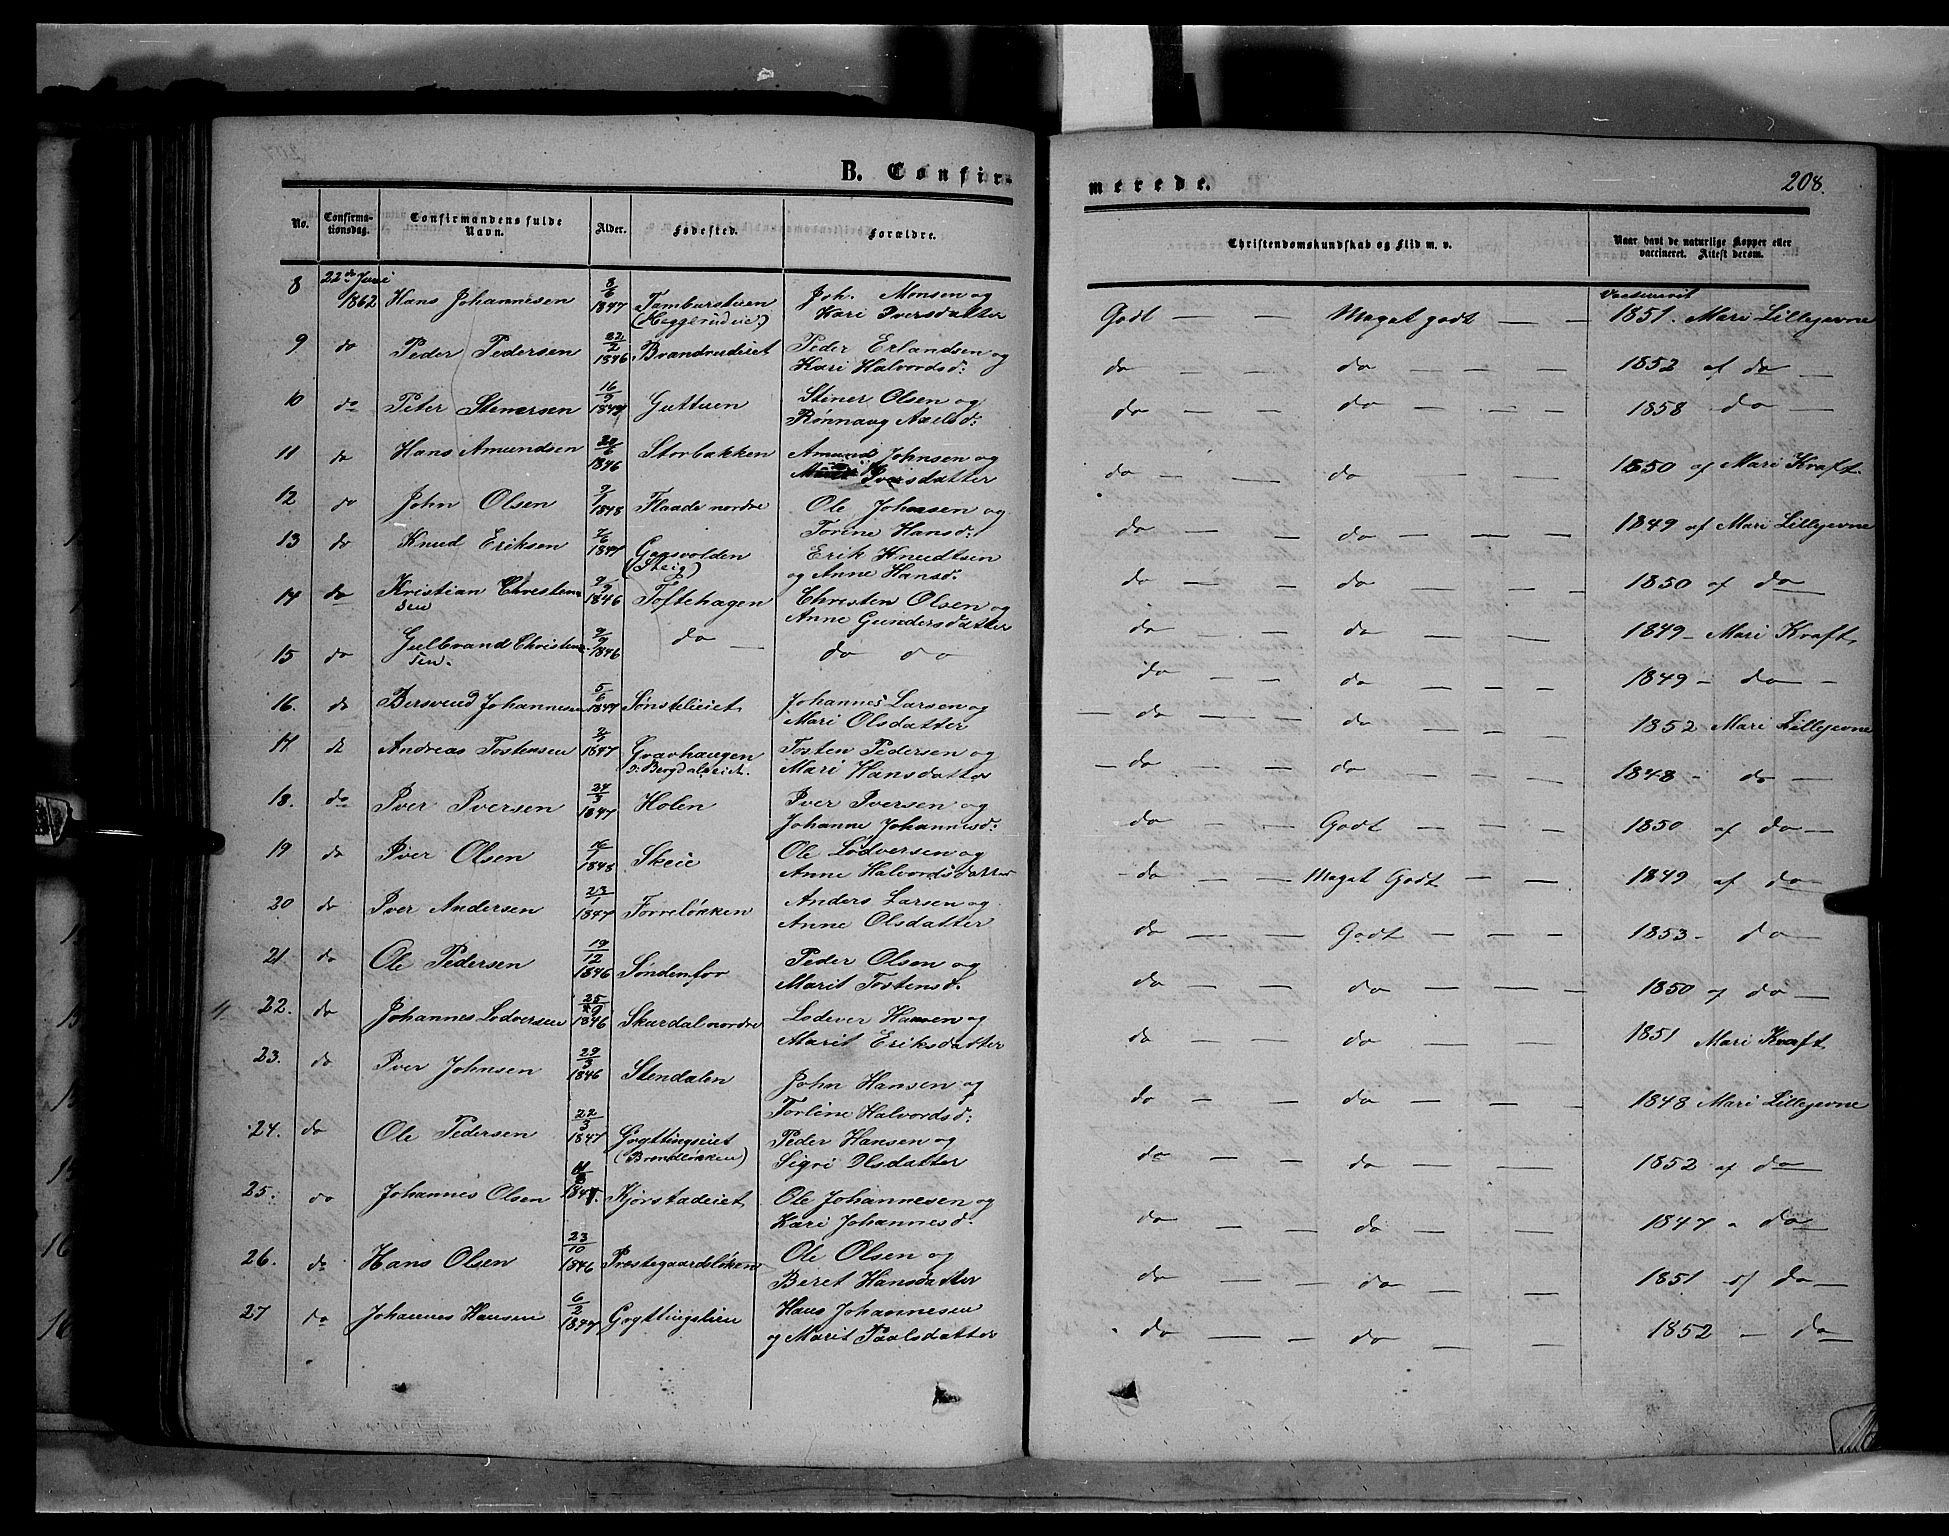 B. Confir-
merede.
208.
No. Confirma-tionsdag. Confirmandens fulde Navn. Alder. Fødested. Forældre. Christendomskundskab og Flid m. v. Naar havt de naturlige Kopper eller vaccineret. Attest derom.
8 22de Juni 1862 Hans Johannesen 8/6 1847 Tamburstuen (Heggerudeie) Joh. Monsen og Kari Iversdatter Godt — — Meget godt — — Vaccinerit 1851. Mari Lillejevne
9 do Peder Pedersen 22/2 1846 Brandrudeiet Peder Erlandsen og Kari Halvordsd: do — — do — — 1852 af do —
10 do Peter Stenersen 16/9 1847 Guttuen Stiner Olsen og Rønnaug Axelsd: do — — do — — 1858 do —
11 do Hans Amundsen 20/6 1846 Storbakken Amund Johnsen og Iversdatter do — — do — — 1850 af Mari Kraft.
12 do John Olsen 9/1 1848 Flaade nordre Ole Johnsen og Torine Hansd: do — — do — — — 1849 af Mari Lillejevne
13 do Knud Eriksen 7/6 1847 (Steig) Erik Knudtsen og Anne Hansd: do — — do — — 1850 af do
14 do Kristian Christensen 9/9 1846 Toftehagen Christen Olsen og Anne Gundersdatter do — — do — — 1849 – Mari Kraft,
15 do Gulbrand Christensen. 9/9 1846 do — do do do — — do — — 1849 – do –
16. do Bersvend Johannesen 5/6 1847 Sønstelieiet Johannes Larsen og Mari Olsdatter — do — — do — — 1852 Mari Lillejevne
17 do Andreas Tostensen 1847 Gravhaugen o: Bergdalseiet. Tosten Pedersen og Mari Hansdatter — do — — do — — 1848 – do —
18. do Iver Iversen 24/3 1847 Holen Iver Iversen og Johanne Johannesd: do — — Godt — — — 1850 af do —
19 do Iver Olsen 1848 Skeie Ole Lodversen og Anne Halvordsdatter do — — Meget Godt — — 1849 af do
20 do Iver Andersen 23/1 1847 Forreløkken Anders Larsen og Anne Olsdatter do — — Godt — — — 1853 – do
21 do Ole Pedersen 19/12 1846 Søndenfor Peder Olsen og Marit Tostensd. do — — do — — — 1850 af do —
22. do Johannes Lodversen 25/10 1846 Skurdal nordre Lodever Hansen og Marit Eriksdatter do — — do — — 1851 Mari Kraft
23. do Iver Johnsen 29/3 1846 Stendalen John Hansen og Torline Halvordsd: do — — do — — 1848 Mari Lillejevne
24. do Ole Pedersen 22/3 1847 Gryttingseiet (Brændløkken) Peder Hansen og Sigri Olsdatter do — — do — — 1852 af do
25. do Johannes Olsen 1847. Kjørstadeiet Ole Johannesen og Kari Johannesd. do — — do — — 1847 " do
26. do Hans Olsen 23/10 1846 Præstegaardsløkken Ole Olsen og Beret Hansdatter do — — do — — 1851 af do —
27 do Johannes Hansen 6/2 1847 Gryttingslien Hans Johannesen og Marit Paalsdatter do — — do — — 1852 – do